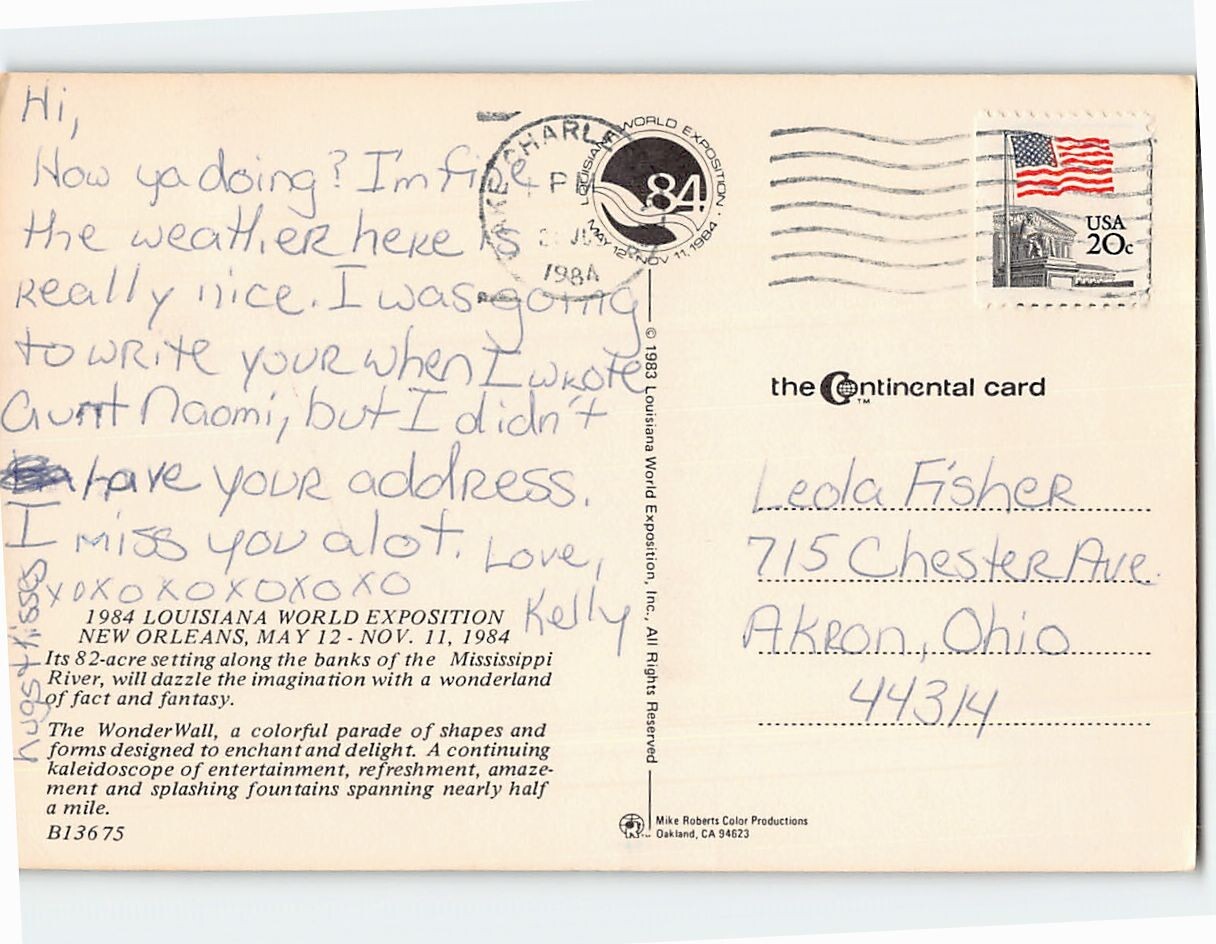 Hi,
How ya doing? I'm fine
the weather here is
really nice. I was going
to write your when I wrote
Aunt Naomi, but I didn't
have your address.
I miss you alot. Love,
xoxoxoxoxoxo
Kelly
hugs + kisses
1984 LOUISIANA WORLD EXPOSITION
NEW ORLEANS, MAY 12 - NOV. 11, 1984
Its 82-acre setting along the banks of the Mississippi
River, will dazzle the imagination with a wonderland
of fact and fantasy.
The WonderWall, a colorful parade of shapes and
forms designed to enchant and delight. A continuing
kaleidoscope of entertainment, refreshment, amaze-
ment and splashing fountains spanning nearly half
a mile.
B13675
LAKE CHARLE
P
JU
1984
LOUISIANA WORLD EXPOSITION
84
MAY 12 - NOV 11, 1984
© 1983 Louisiana World Exposition, Inc., All Rights Reserved
Mike Roberts Color Productions
Oakland, CA 94623
USA
20c
the Continental card
TM
Leola Fisher
715 Chester Ave.
Akron, Ohio
44314